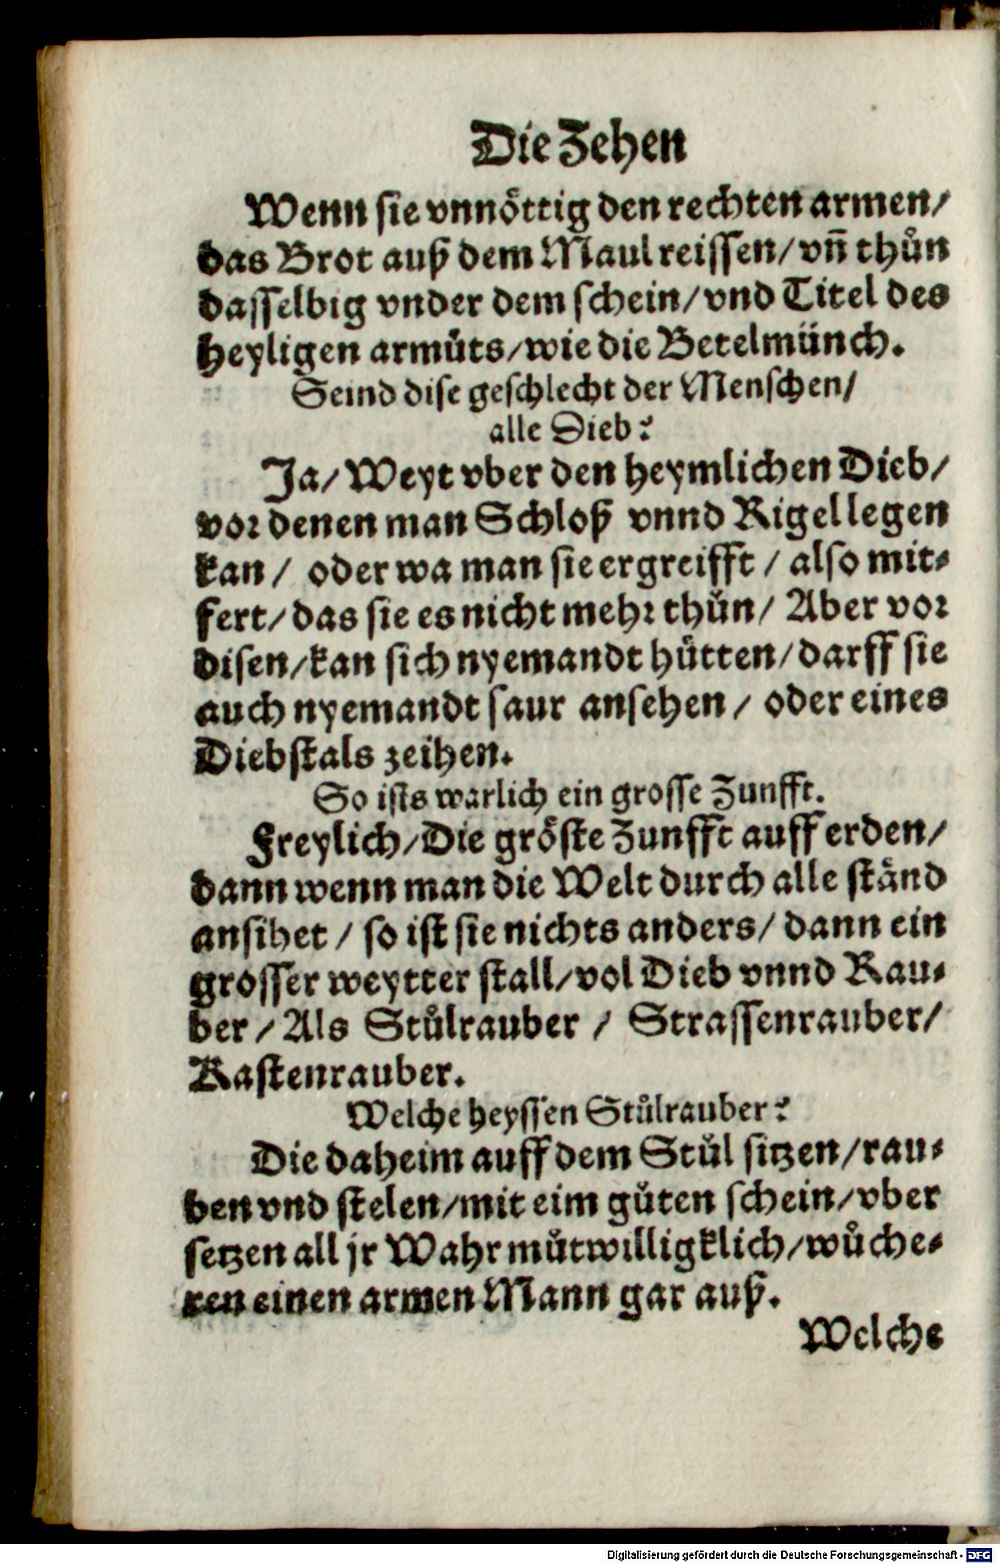 Die Zehen
Wenn sie vnnöttig den rechten armen/
das Brot auß dem Maul reissen/ vñ thůn
dasselbig vnder dem schein/ vnd Titel des
heyligen armůts/ wie die Betelmünch.
Seind dise geschlecht der Menschen/
alle Dieb?
Ja/ Weyt vber den heymlichen Dieb/
vor denen man Schloß vnnd Rigel legen
kan/ oder wa man sie ergreifft/ also mit⸗
fert/ das sie es nicht mehr thůn/ Aber vor
disen/ kan sich nyemandt hůtten/ darff sie
auch nyemandt saur ansehen/ oder eines
Diebstals zeihen.
So ists warlich ein grosse Zunfft.
Freylich/ Die gröste Zunfft auff erden/
dann wenn man die Welt durch alle ständ
ansihet/ so ist sie nichts anders/ dann ein
grosser weytter stall/ vol Dieb vnnd Rau⸗
ber/ Als Stůlrauber/ Strassenrauber/
Kastenrauber.
Welche heyssen Stůlrauber?
Die daheim auff dem Stůl sitzen/ rau⸗
ben vnd stelen/ mit eim gůten schein/ vber
setzen all jr Wahr můtwilligklich/ wůche⸗
ren einen armen Mann gar auß.
Welche
Digitalisierung gefördert durch die Deutsche Forschungsgemeinschaft - DFG